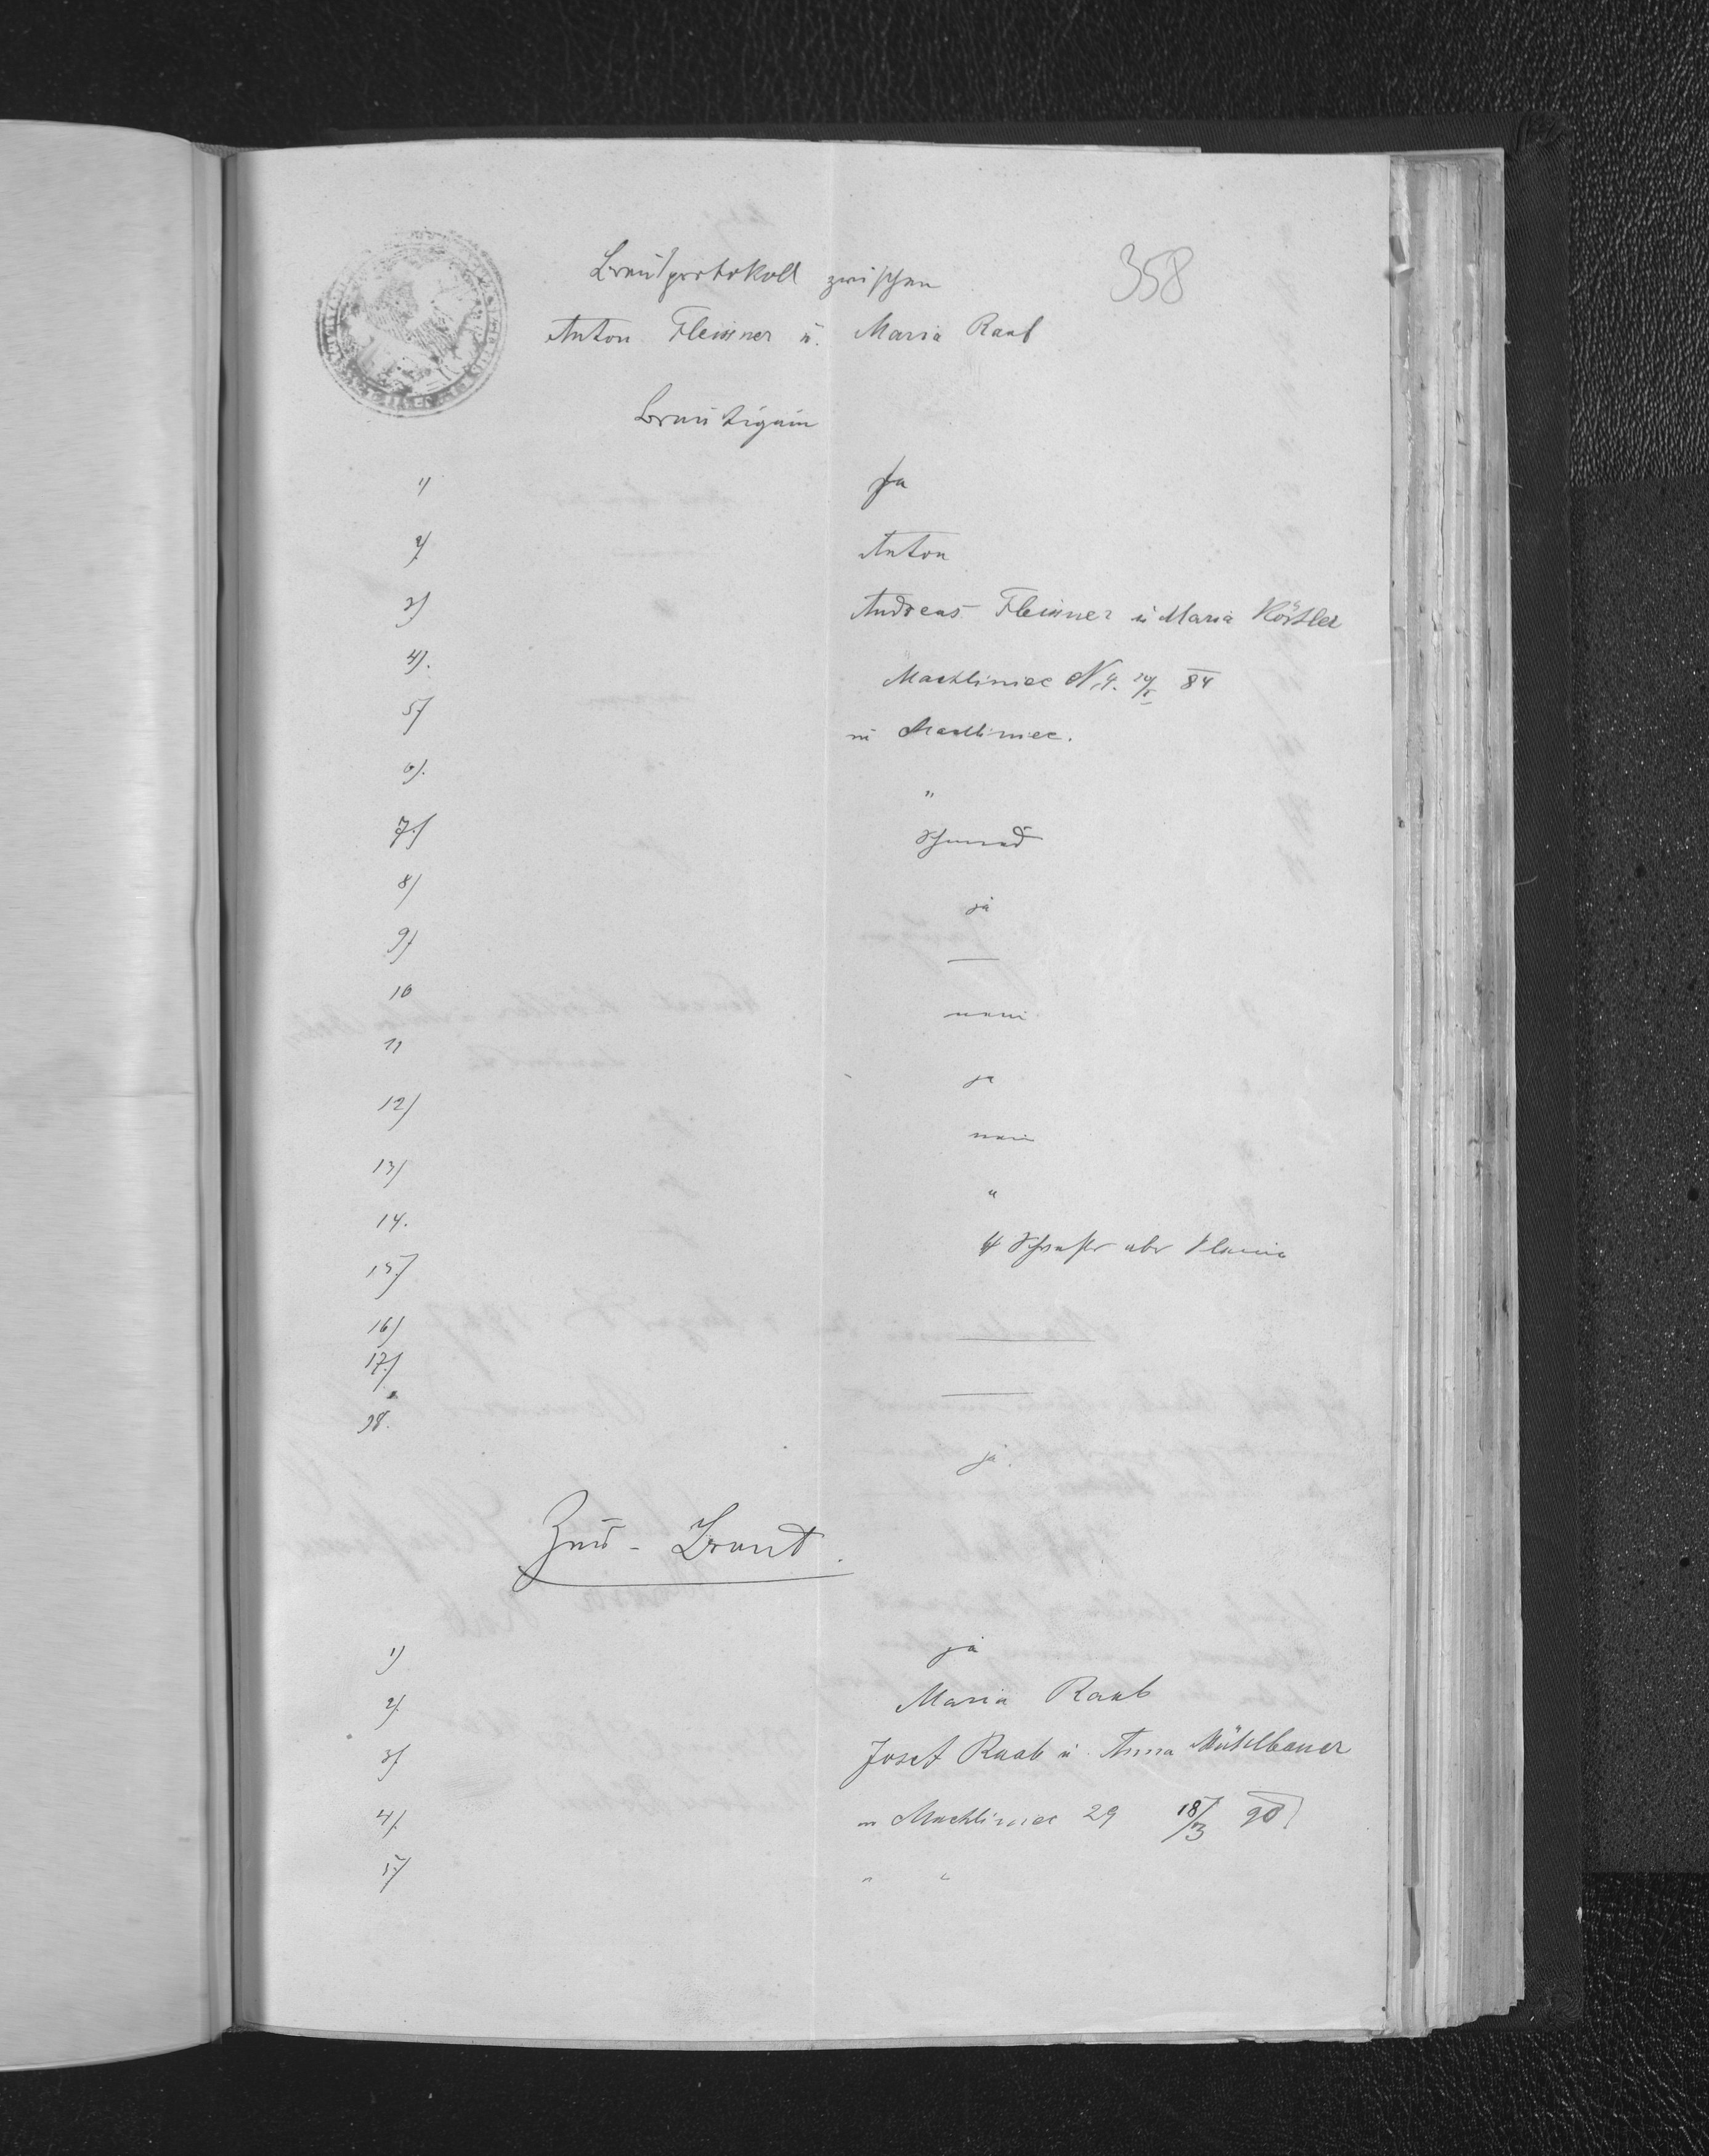 358
Brautprotokoll zwischen
Anton Fleissner u. Maria Raab
Bräutigam
1) Ja
2) Anton
3) Andreas Fleissner u Maria Köstler
4). Machliniec N 4. 84
5) in Machliniec.
6). "
7.)
8) ja
9) —
10 nein
11 ja
12) nein
13) "
14. 4 aber
15.)
16) —
17.) —
18. ja.
Braut.
1) ja
2) Maria Raab
3) Josef Raab u. Anna Mühlbauer
4) in Machliniec 29 18/3 90
5.) " "